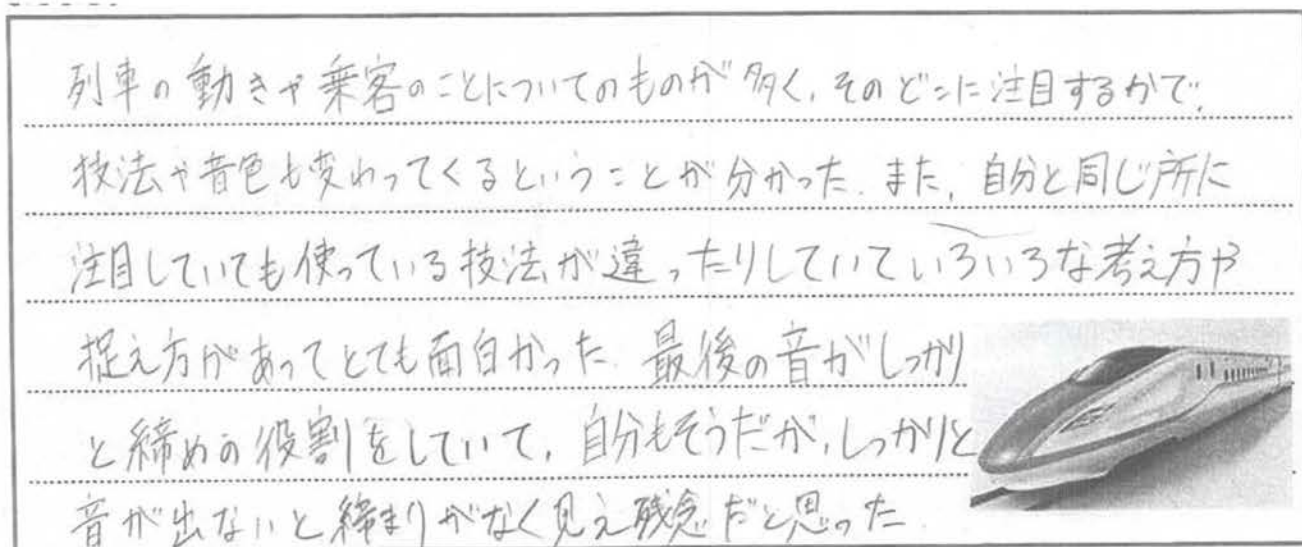 列車の動きや乗客のことについてのものが多く、そのどこに注目するかで、
技法や音色も変わってくるということが分かった。また、自分と同じ所に
注目していても使っている技法が違ったりしていていろいろな考え方や
捉え方があってとても面白かった。最後の音がしっかり
と締めの役割をしていて、自分もそうだが、しっかりと
音が出ないと締まりがなく見え残念だと思った。